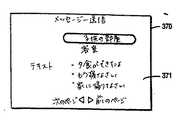 メッセージ送信
子供の部屋
370
寝室
テキスト
・夕食ができたよ
・もう寝なさい
371
・早く帰りなさい
次のページ ◁ ▷ 前のページ